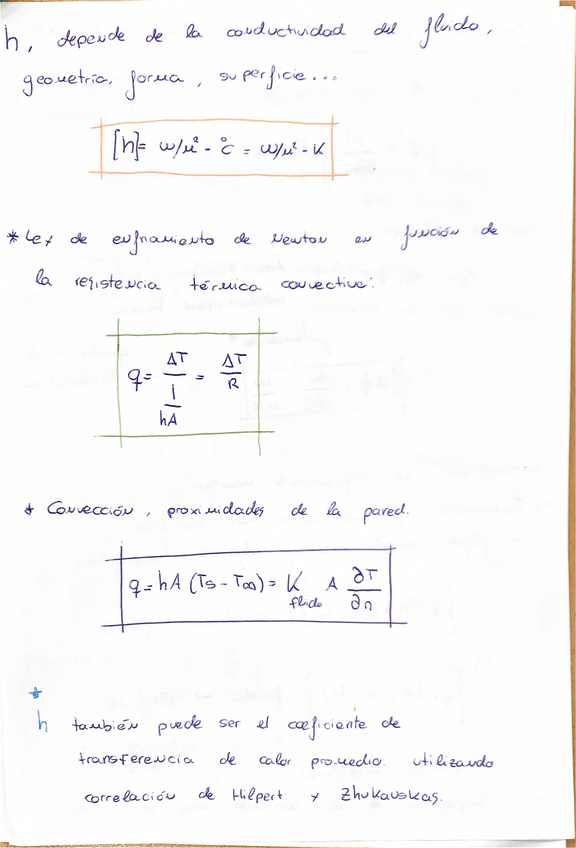 h, depende de la conductividad del fluido,
geometría, forma, superficie...
[h]= w/m² - °C = w/m² - K
* Ley de enfriamiento de Newton en función de
la resistencia térmica convectiva:
q = ΔT / (1/hA) = ΔT / R
* Convección, proximidades de la pared.
q = hA (Ts - T∞) = K fluido A ∂T/∂n
*
h también puede ser el coeficiente de
transferencia de calor promedio. utilizando
correlación de Hilpert y Zhukauskas.